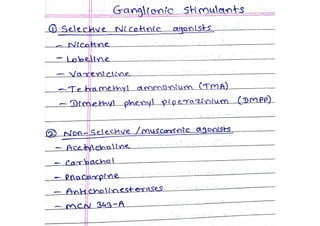 Ganglionic Stimulants
① Selective Nicotinic agonists
- Nicotine
- Lobeline
- Varenicline
- Tetramethyl ammonium (TMA)
- Dimethyl phenyl piperazinium (DMPP)
② Non-Selective / muscarinic agonists
- Acetylcholine
- Carbachol
- Pilocarpine
- Anticholinesterases
- MCN 343-A